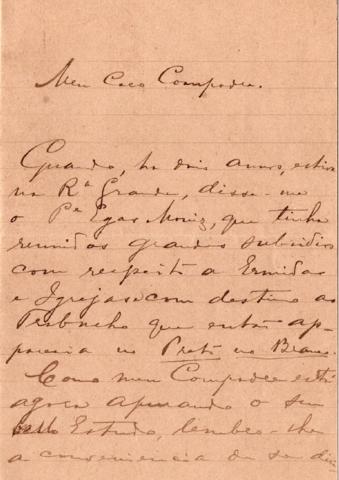 Meu Caro Compadre.
Quando, ha dois annos, estive
na Rª Grande, disse-me
o Pe Egas Moniz, que tinha
reunidos grandes subsidios
com respeito a Ermidas
e Igrejas com destino ao
Trabalho que então ap-
parecia no Preto no Branco.
Como meu Compadre está
agora apurando o seu
bello Estudo, lembro-lhe
a conveniencia de se di-